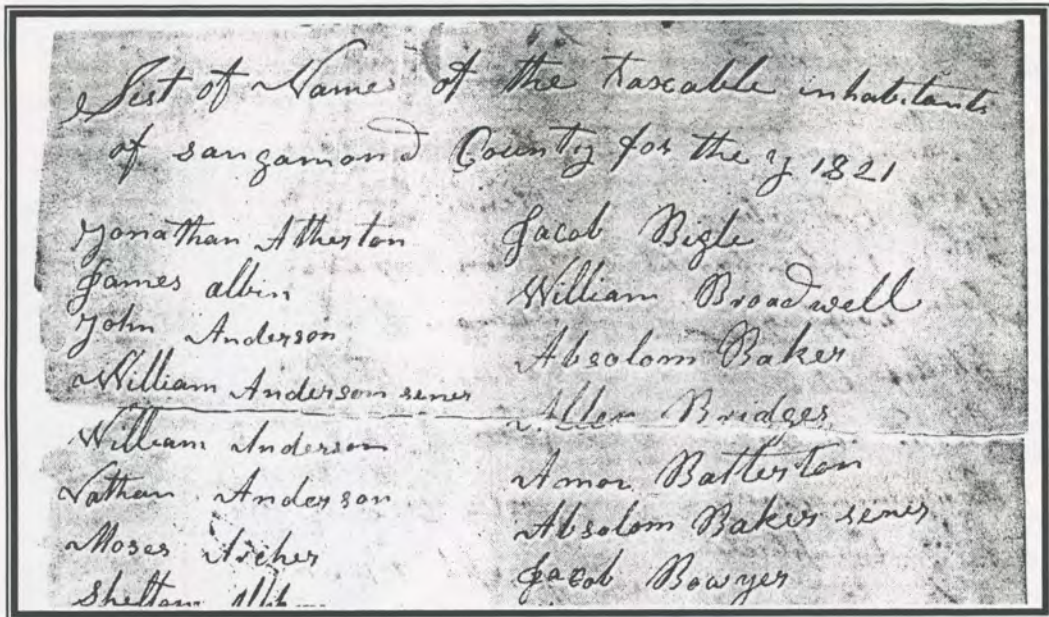 List of Names of the taxcable inhabitants
of sangamond County for the y 1821
Jonathan Atherton
James albin
John Anderson
William Anderson sener
William Anderson
Nathan Anderson
Moses Archer
Shelton
Jacob Bigle
William Broadwell
Absolom Baker
Allen Bridges
Amor Batterton
Absolom Baker sener
Jacob Bowyer